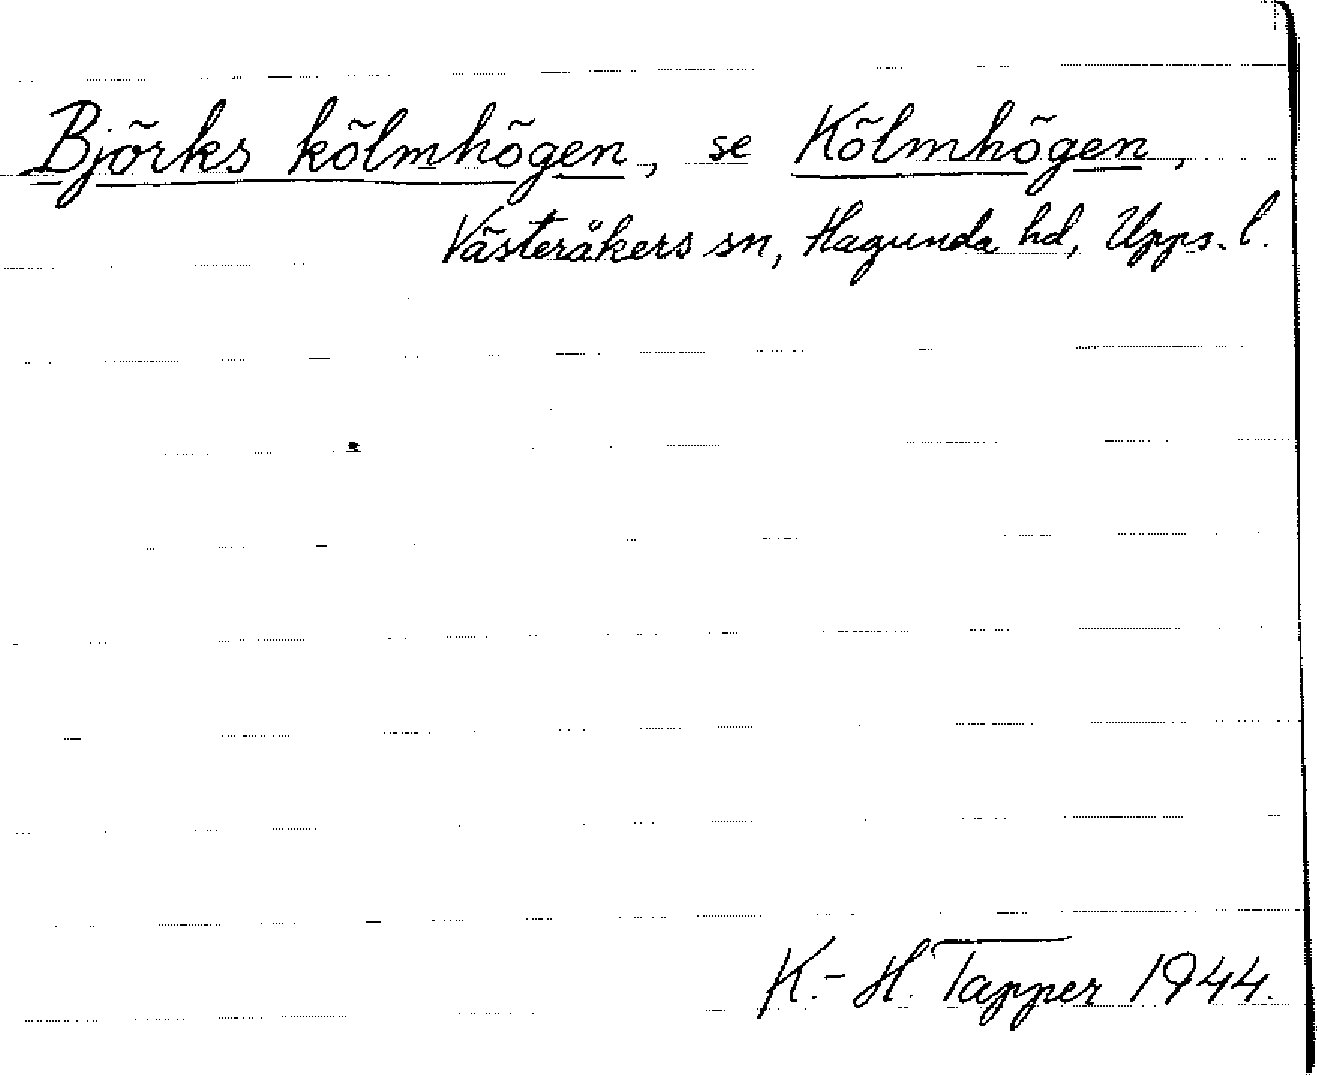 Björks kölmhögen, se Kölmhögen,
Västeråkers sn, Hagunda hd, Upps. l.
K.-H. Tapper 1944.